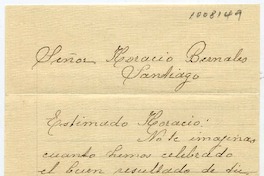 1008149
Señor Horacio Bernales
Santiago
Estimado Horacio:
No te imaginas
cuanto hemos celebrado
el buen resultado de